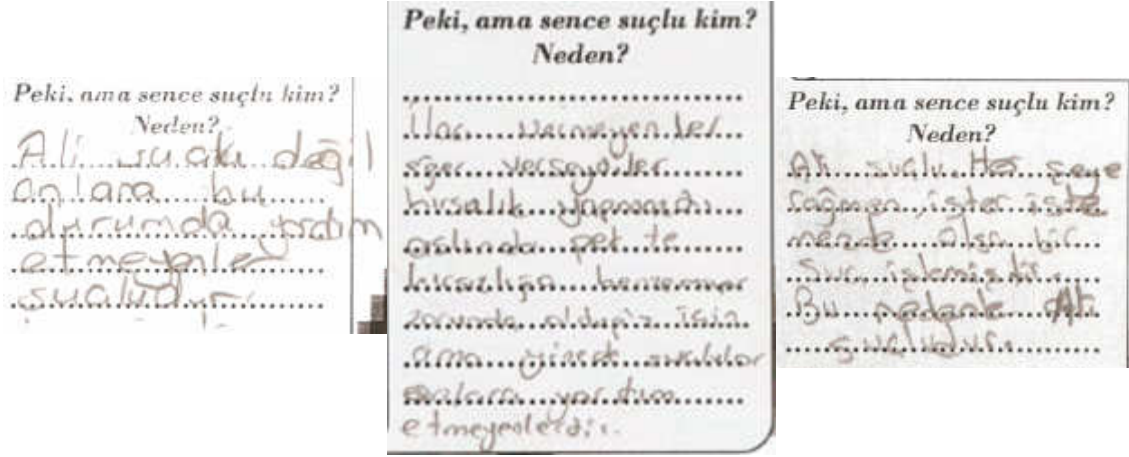 Peki, ama sence suçlu kim?
Neden?
Ali suçlu değil
onlara bu
durumda yardım
etmeyenler
suçludur.
Peki, ama sence suçlu kim?
Neden?
İlaç vermeyenler
eğer verseydiler
hırsızlık yapmazdı
aslında pek te
hırsızlığa benzemiyor
zorunda olduğu için
ama yinede suçlular
onlara yardım
etmeyenlerdir.
Peki, ama sence suçlu kim?
Neden?
Ali suçlu. Her şeye
rağmen ister iste
mezde olsa bir
suç işlemiştir.
Bu nedenle Ali
suçludur.